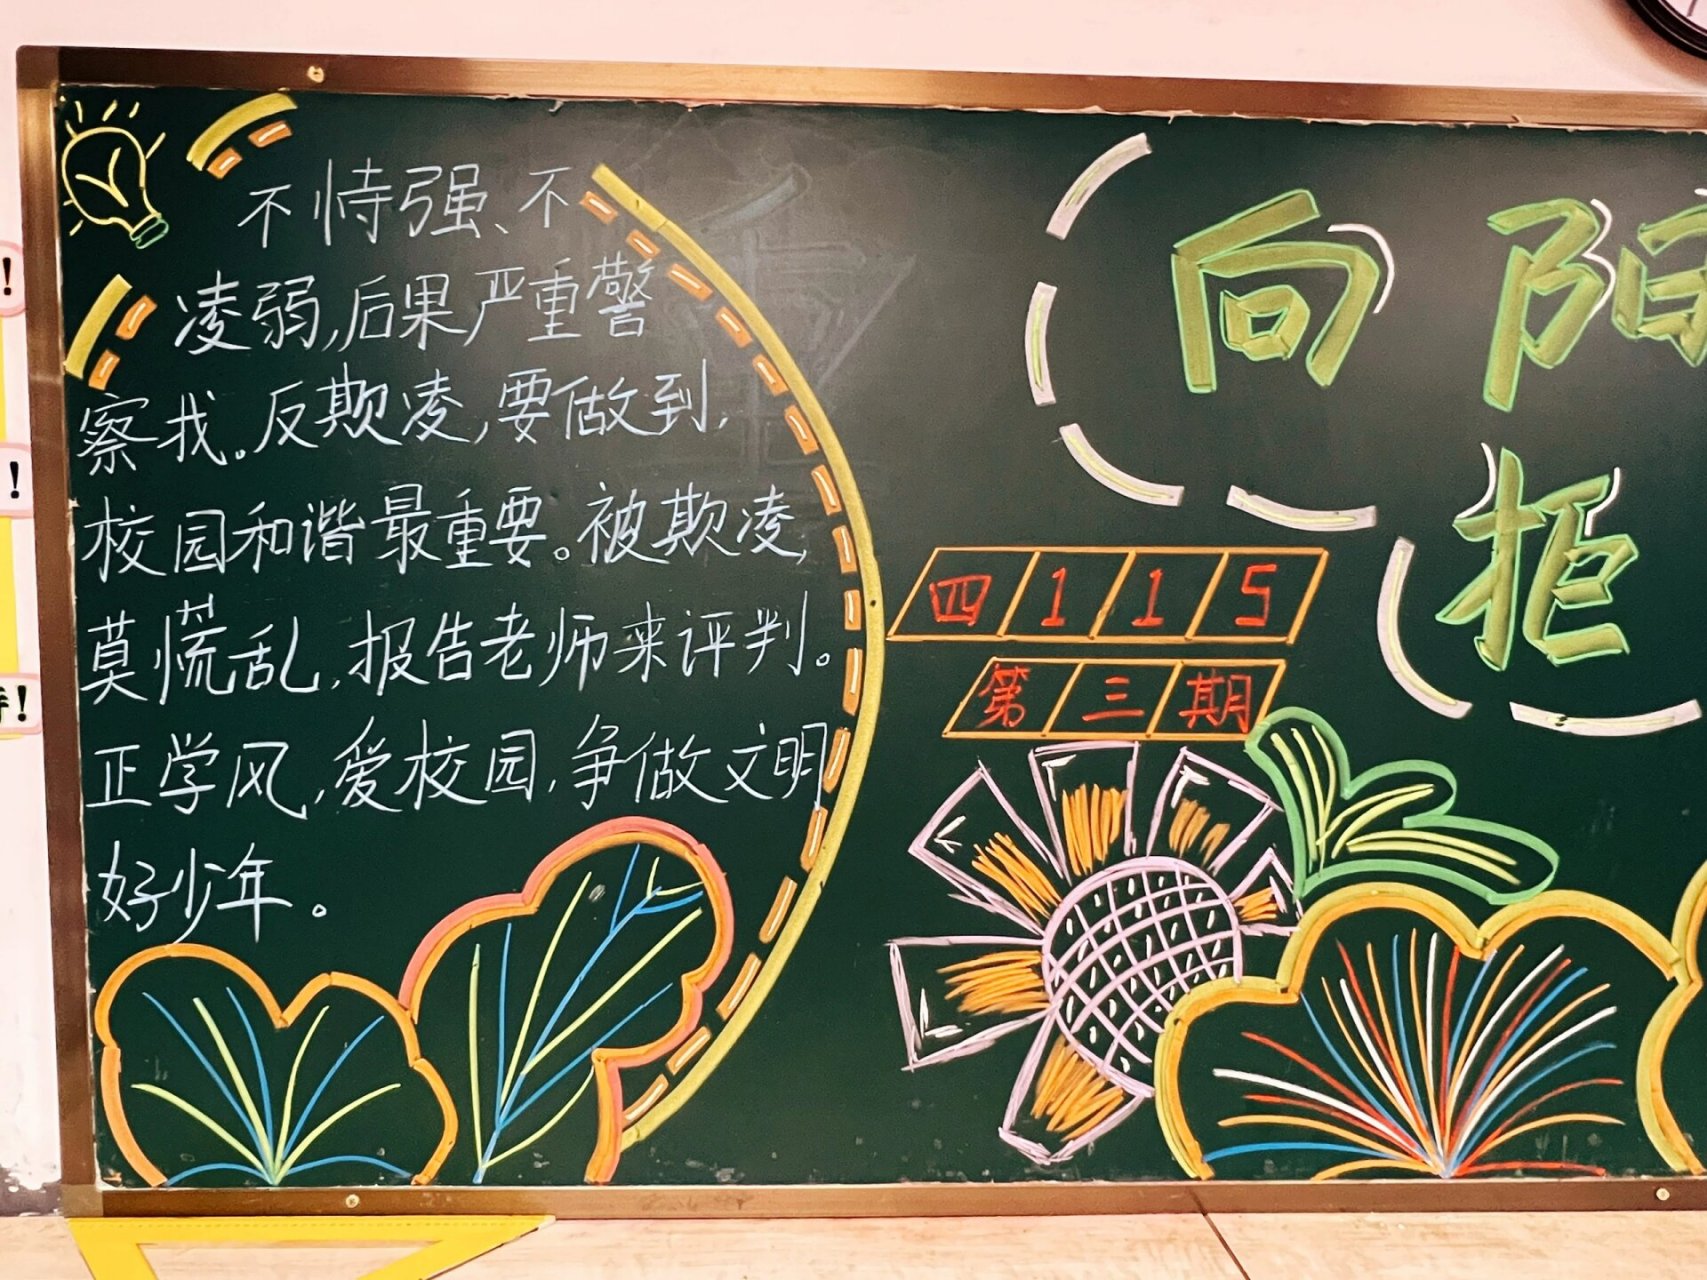 不恃强、不
凌弱,后果严重警
察我。反欺凌,要做到,
校园和谐最重要。被欺凌,
莫慌乱,报告老师来评判。
正学风,爱校园,争做文明
好少年。
向阳
拒
四115
第三期
!
!
!